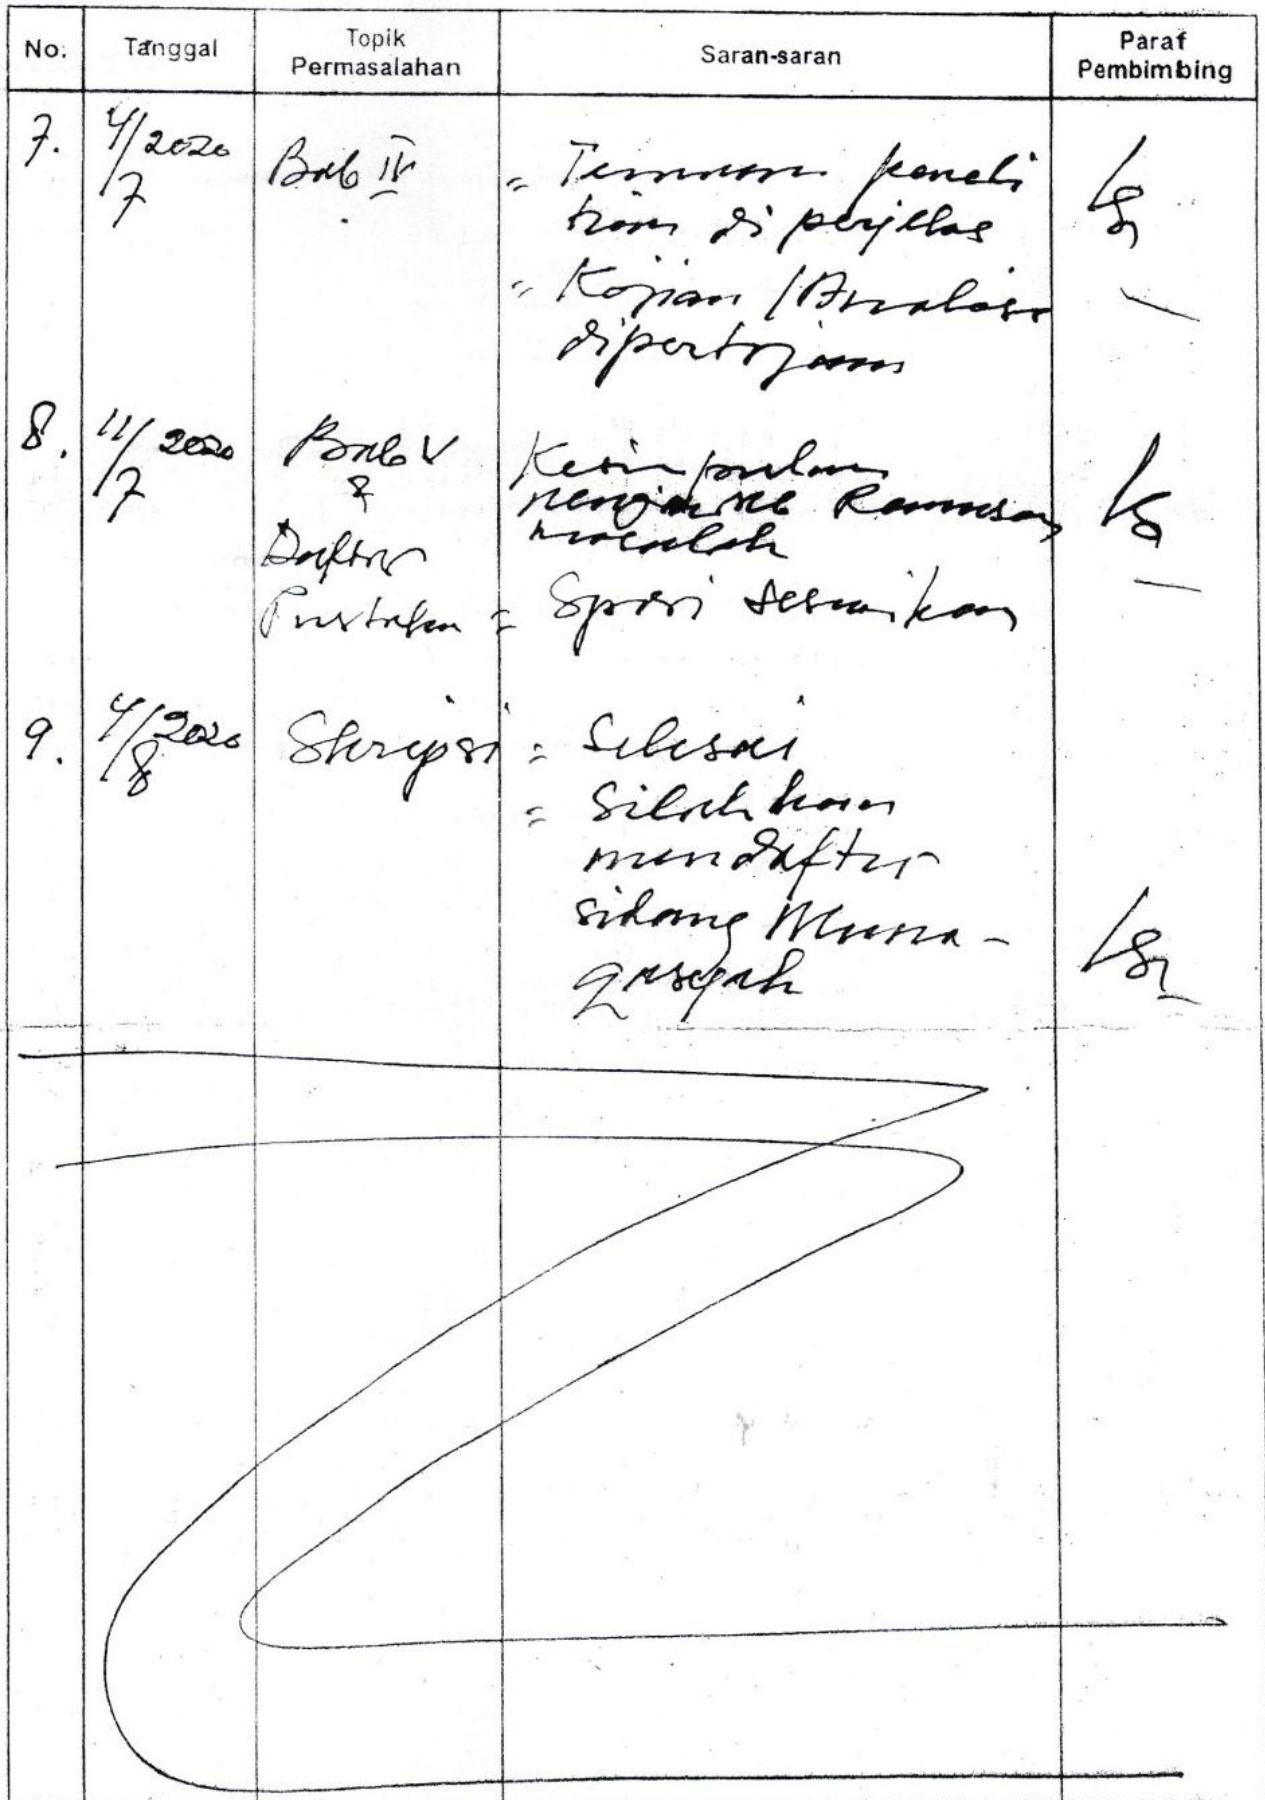 No. Tanggal Topik Permasalahan Saran-saran Paraf Pembimbing
7. 4/7 2020 Bab IV = Temuan peneli
tian di perjelas
= Kajian / Analisis
dipertajam
8. 11/7 2020 Bab V Kesimpulan
& menjawab Rumusan
Daftar masalah
Pustaka = Spasi sesuaikan
9. 4/8 2020 Skripsi = Selesai
= Silahkan
mendaftar
sidang Muna-
qasyah